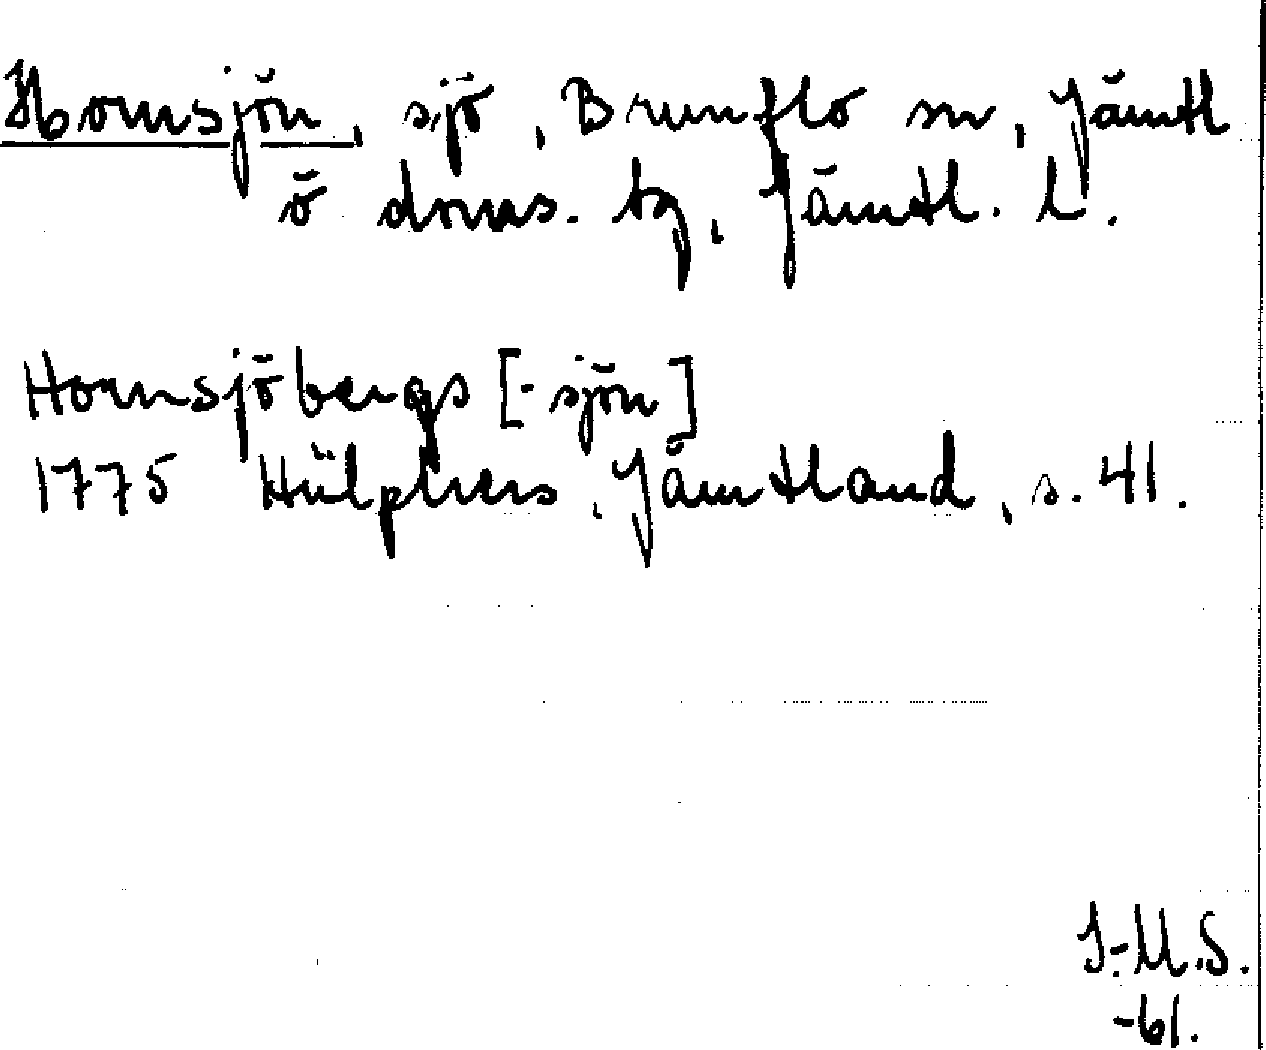 Hornsjön, sjö, Brunflo sn, Jämtl
ö doms. tg, Jämtl. l.
Hornsjöbergs [-sjön]
1775 Hülphers, Jämtland, s. 41.
I.-M.S.
-61.